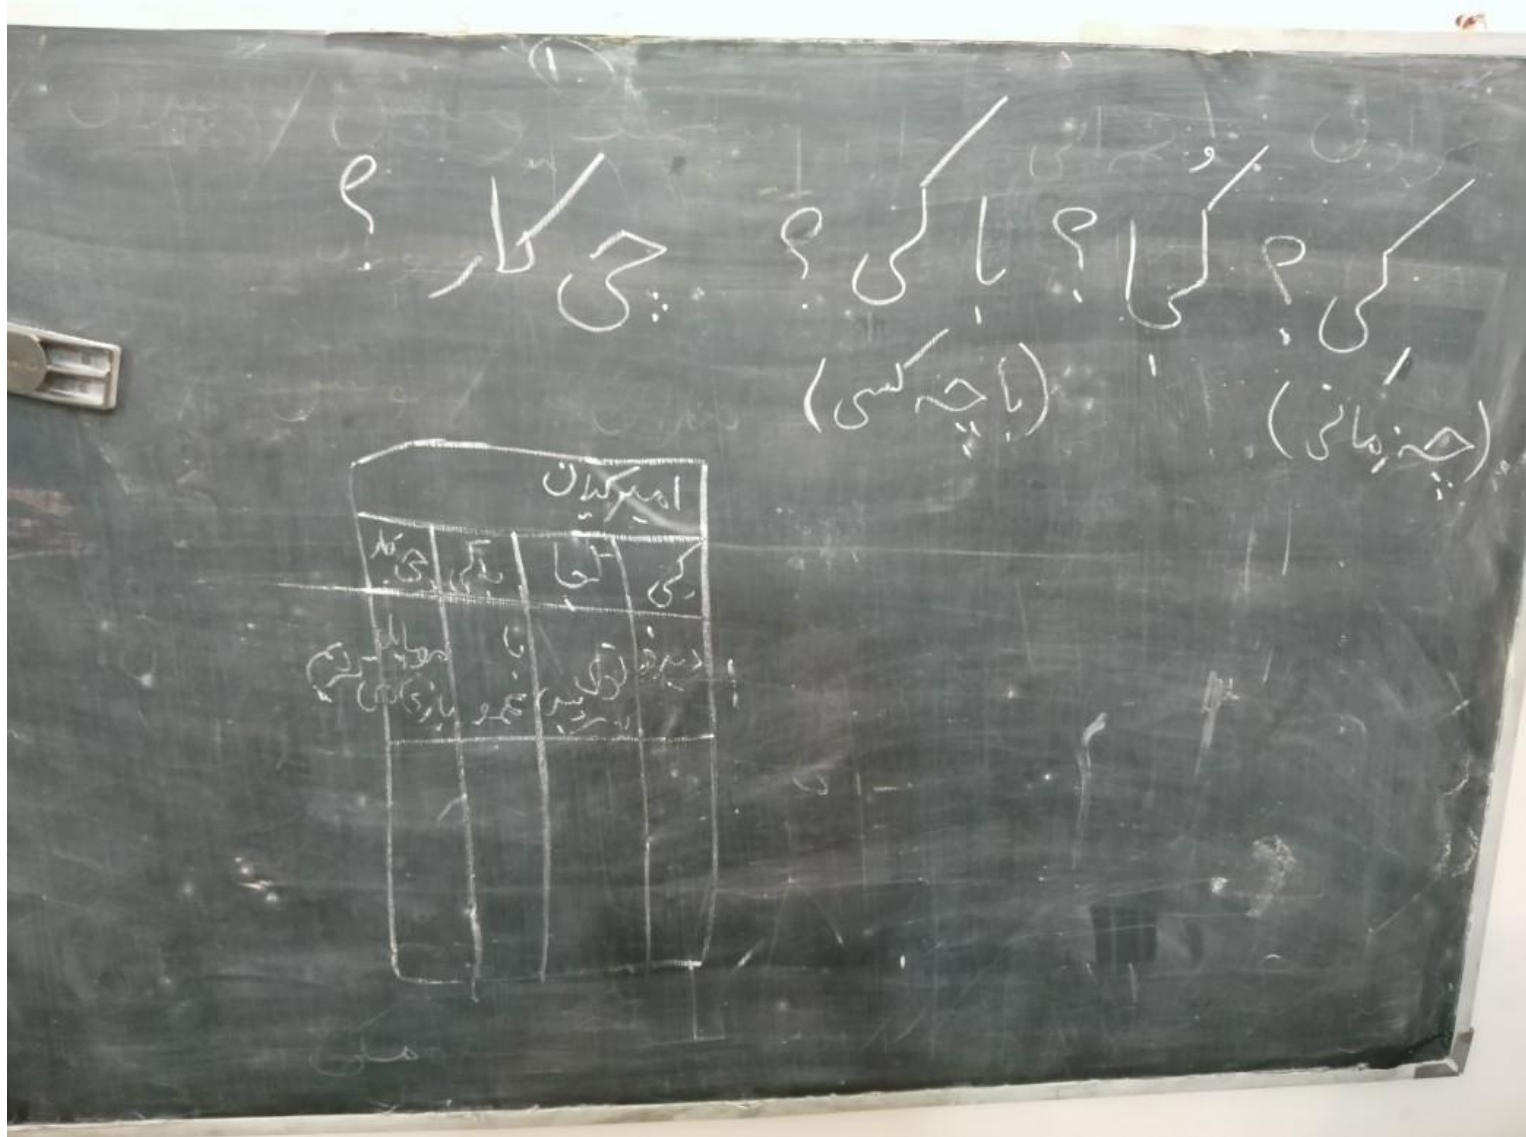 کی؟ کُجا؟ با کی؟ چی کار؟
(چه زمانی) (با چه کسی)
امیرکیان
کی کجا با کی چی کار
دیروز با موبایل
عمو بازی